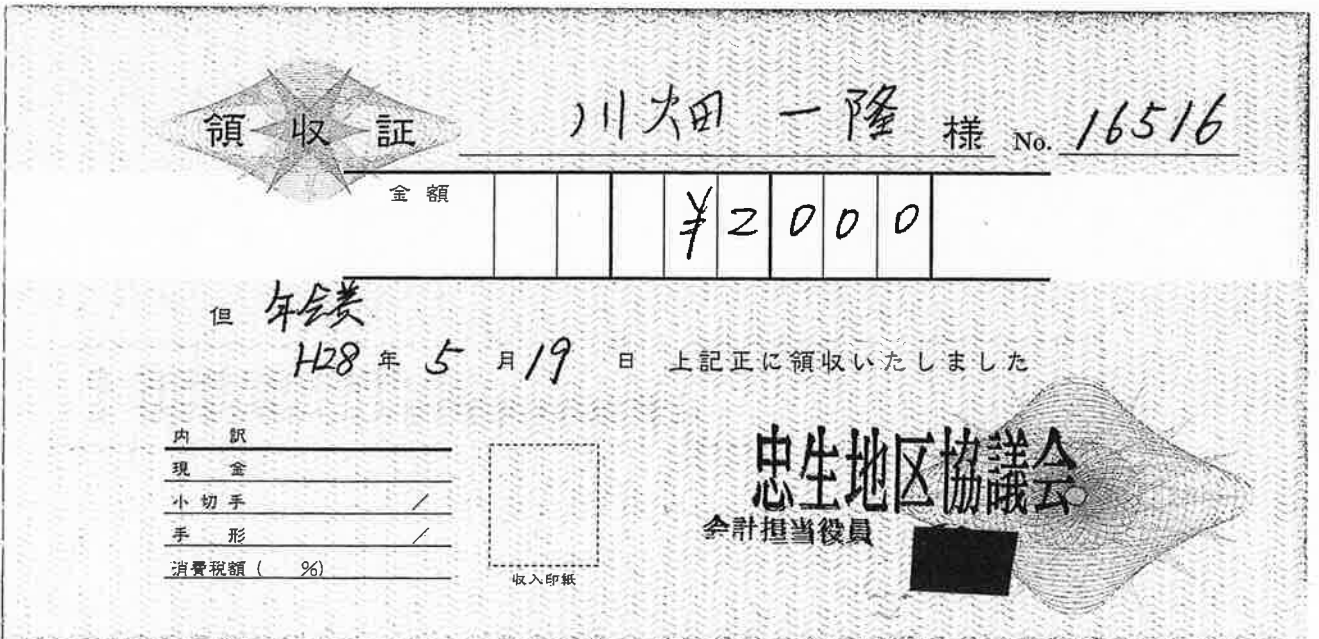 領収証 川畑 一隆 様 No. 16516
金額 ¥2000
但 年会費
H28 年 5 月 19 日 上記正に領収いたしました
内訳
現金
小切手 /
手形 /
消費税額 ( %)
収入印紙
忠生地区協議会
会計担当役員